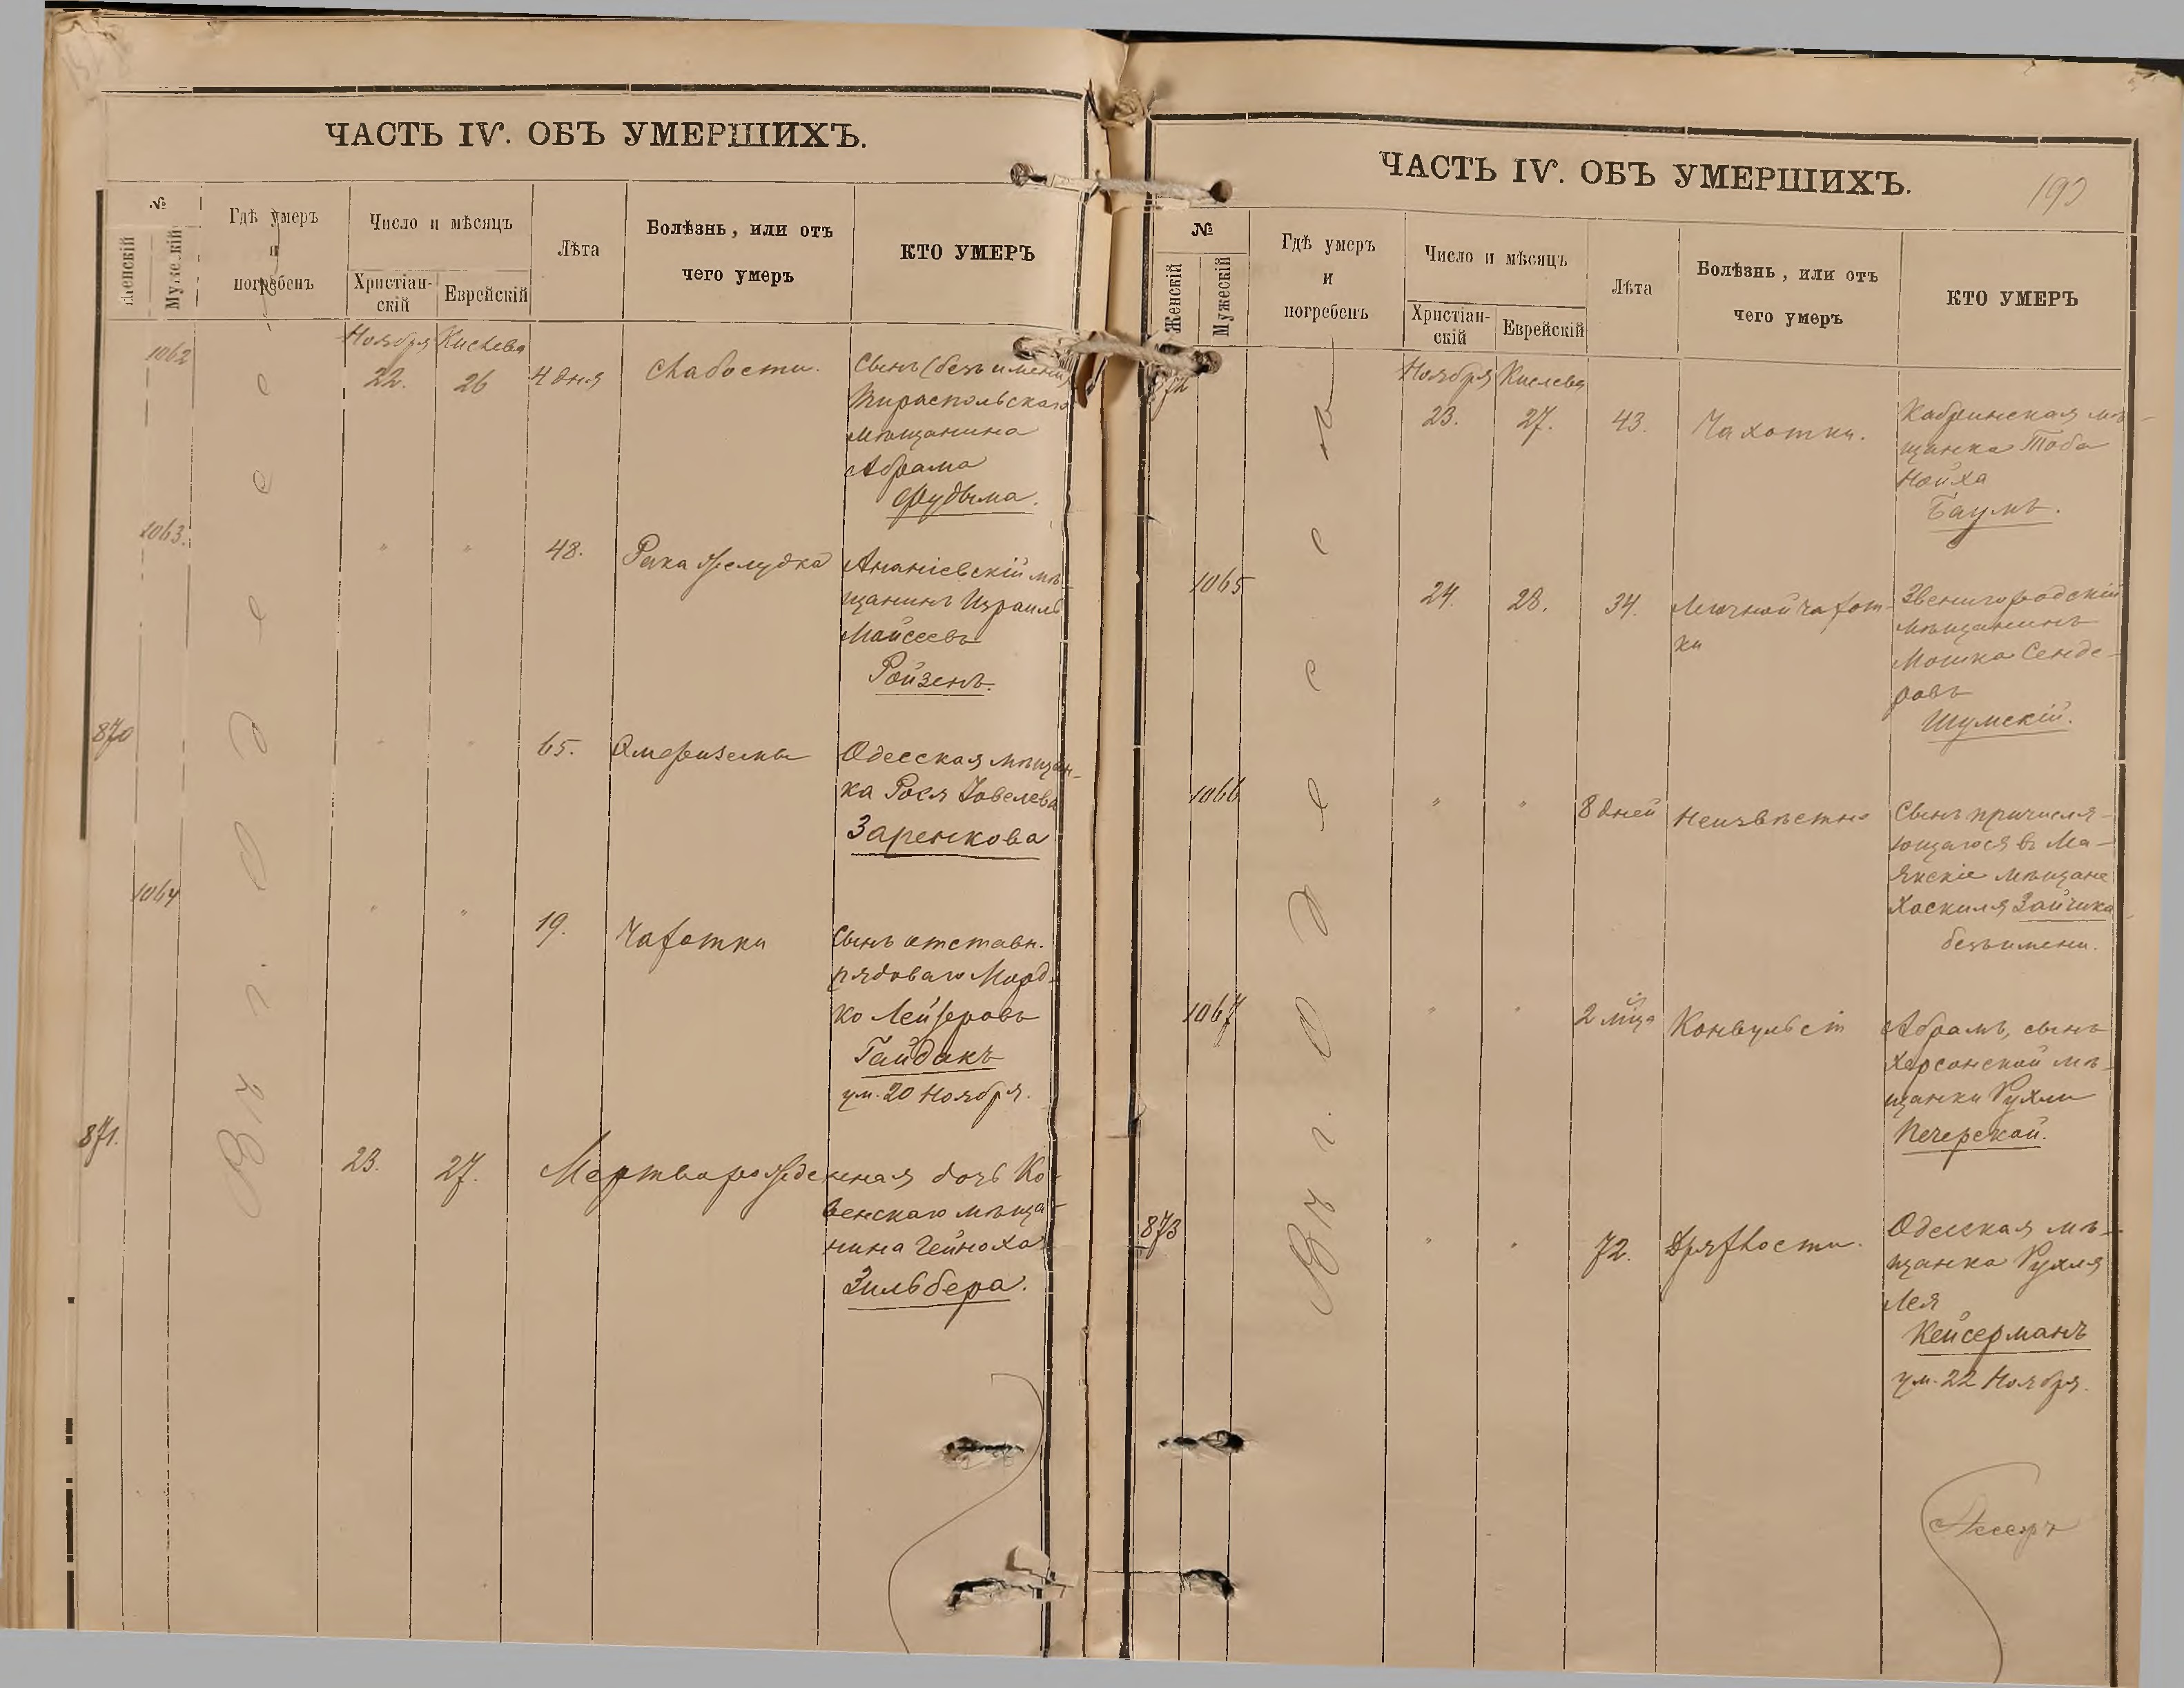 ЧАСТЬ IV. ОБЪ УМЕРШИХЪ.
№
Женскій
Мужескій
Гдѣ умеръ
и
погребенъ
Число и мѣсяцъ
Христіан-
скій
Еврейскій
Лѣта
Болѣзнь, или отъ
чего умеръ
КТО УМЕРЪ
Въ г. Одессѣ
Ноября Кислева
1062 22. 26 4 дня Слабости. Сынъ (безъ имени)
Тираспольскаго
мѣщанина
Абрама
Фудыма.
1063. " " 48. Рака желудка Ананіевскій мѣ-
щанинъ Израиль
Мойсеевъ
Ройзенъ.
870 " " 65. Одесская мѣщан-
ка Рося Іовелева
Заренкова
1064 " " 19. Чахотки Сынъ отставн.
рядоваго Морд-
ко Лейзеровъ
Гайдакъ
ум. 20 Ноября.
871. 23. 27. Мертворожденная дочь Ко-
венскаго мѣща-
нина Гейноха
Зильбера.
ЧАСТЬ IV. ОБЪ УМЕРШИХЪ.
№
Женскій
Мужескій
Гдѣ умеръ
и
погребенъ
Число и мѣсяцъ
Христіан-
скій
Еврейскій
Лѣта
Болѣзнь, или отъ
чего умеръ
КТО УМЕРЪ
Въ г. Одессѣ
Ноября Кислева
872 23. 27. 43. Чахотки. Кобринская мѣ-
щанка Тоба
Нойха
Баумъ.
1065 24. 28. 34. Легочной чахот-
ки
Звенигородскій
мѣщанинъ
Мошко Сенде-
ровъ
Шумскій.
1066 " " 8 дней Неизвѣстно Сынъ причисля-
ющагося въ Ма-
якскіе мѣщане
Хаскиля Зайчика
безъ имени.
1067 " " 2 м-ца Конвульсіи Абрамъ, сынъ
Херсонской мѣ-
щанки Рухли
Печерской.
873 " " 72. Дряхлости. Одесская мѣ-
щанка Рухля
Лея
Кейсерманъ
ум. 22 Ноября.